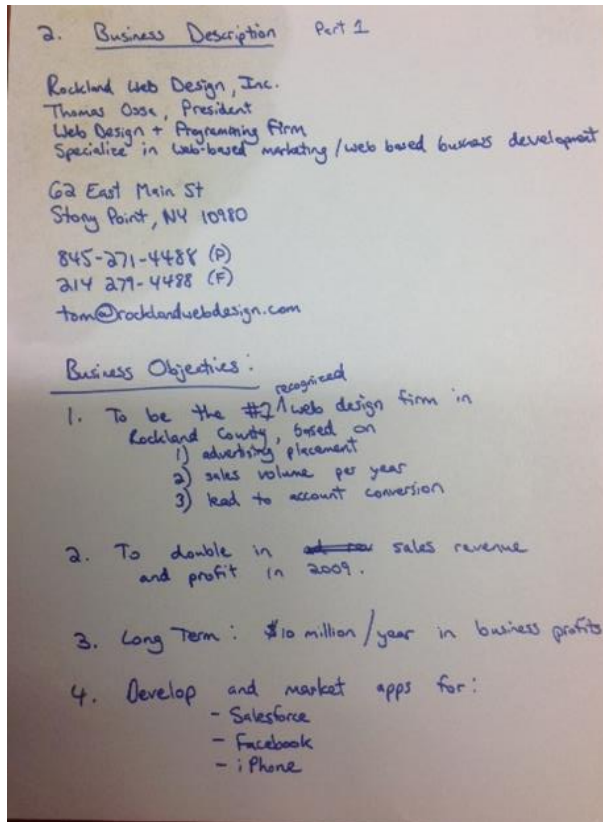 2. Business Description Part 1
Rockland Web Design, Inc.
Thomas Ossa, President
Web Design + Programming Firm
Specialize in web-based marketing/web based business development
62 East Main St
Stony Point, NY 10980
845-271-4488 (P)
214 279-4488 (F)
tom@rocklandwebdesign.com
Business Objectives:
1. To be the #1 ^ recognized web design firm in
Rockland County, based on
1) advertising placement
2) sales volume per year
3) lead to account conversion
2. To double in sales revenue
and profit in 2009.
3. Long Term: $10 million/year in business profits
4. Develop and market apps for:
- Salesforce
- Facebook
- iPhone